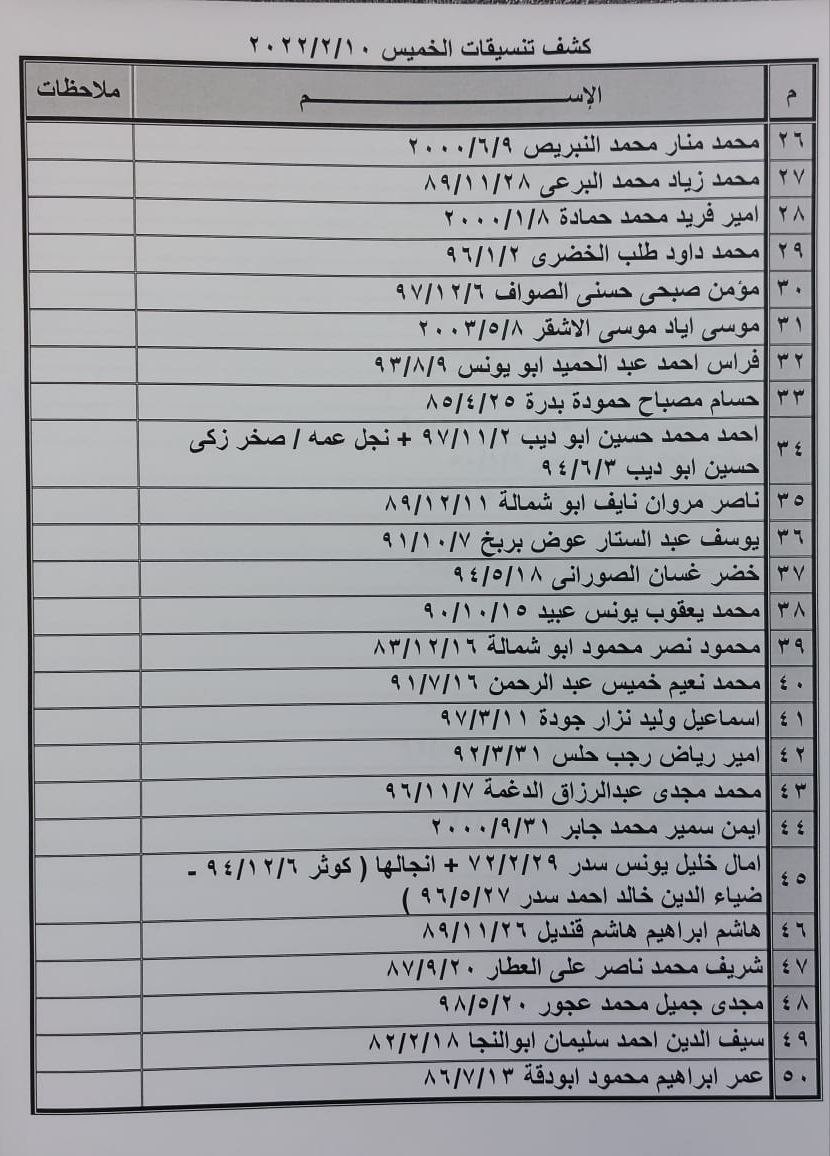 كشف تنسيقات الخميس ٢٠٢٢/٢/١٠
م الإســـــــــــــــــم ملاحظات
٢٦ محمد منار محمد النبريص ٢٠٠٠/٦/٩
٢٧ محمد زياد محمد البرعى ٨٩/١١/٢٨
٢٨ امير فريد محمد حمادة ٢٠٠٠/١/٨
٢٩ محمد داود طلب الخضرى ٩٦/١/٢
٣٠ مؤمن صبحى حسنى الصواف ٩٧/١٢/٦
٣١ موسى اياد موسى الاشقر ٢٠٠٣/٥/٨
٣٢ فراس احمد عبد الحميد ابو يونس ٩٣/٨/٩
٣٣ حسام مصباح حمودة بدرة ٨٥/٤/٢٥
٣٤ احمد محمد حسين ابو ديب ٩٧/١١/٢ + نجل عمه / صخر زكى
حسين ابو ديب ٩٤/٦/٣
٣٥ ناصر مروان نايف ابو شمالة ٨٩/١٢/١١
٣٦ يوسف عبد الستار عوض بربخ ٩١/١٠/٧
٣٧ خضر غسان الصورانى ٩٤/٥/١٨
٣٨ محمد يعقوب يونس عبيد ٩٠/١٠/١٥
٣٩ محمود نصر محمود ابو شمالة ٨٣/١٢/١٦
٤٠ محمد نعيم خميس عبد الرحمن ٩١/٧/١٦
٤١ اسماعيل وليد نزار جودة ٩٧/٣/١١
٤٢ امير رياض رجب حلس ٩٢/٣/٣١
٤٣ محمد مجدى عبدالرزاق الدغمة ٩٦/١١/٧
٤٤ ايمن سمير محمد جابر ٢٠٠٠/٩/٣١
٤٥ امال خليل يونس سدر ٧٢/٢/٢٩ + انجالها ( كوثر ٩٤/١٢/٦ -
ضياء الدين خالد احمد سدر ٩٦/٥/٢٧ )
٤٦ هاشم ابراهيم هاشم قنديل ٨٩/١١/٢٦
٤٧ شريف محمد ناصر على العطار ٨٧/٩/٢٠
٤٨ مجدى جميل محمد عجور ٩٨/٥/٢٠
٤٩ سيف الدين احمد سليمان ابوالنجا ٨٢/٢/١٨
٥٠ عمر ابراهيم محمود ابودقة ٨٦/٧/١٣